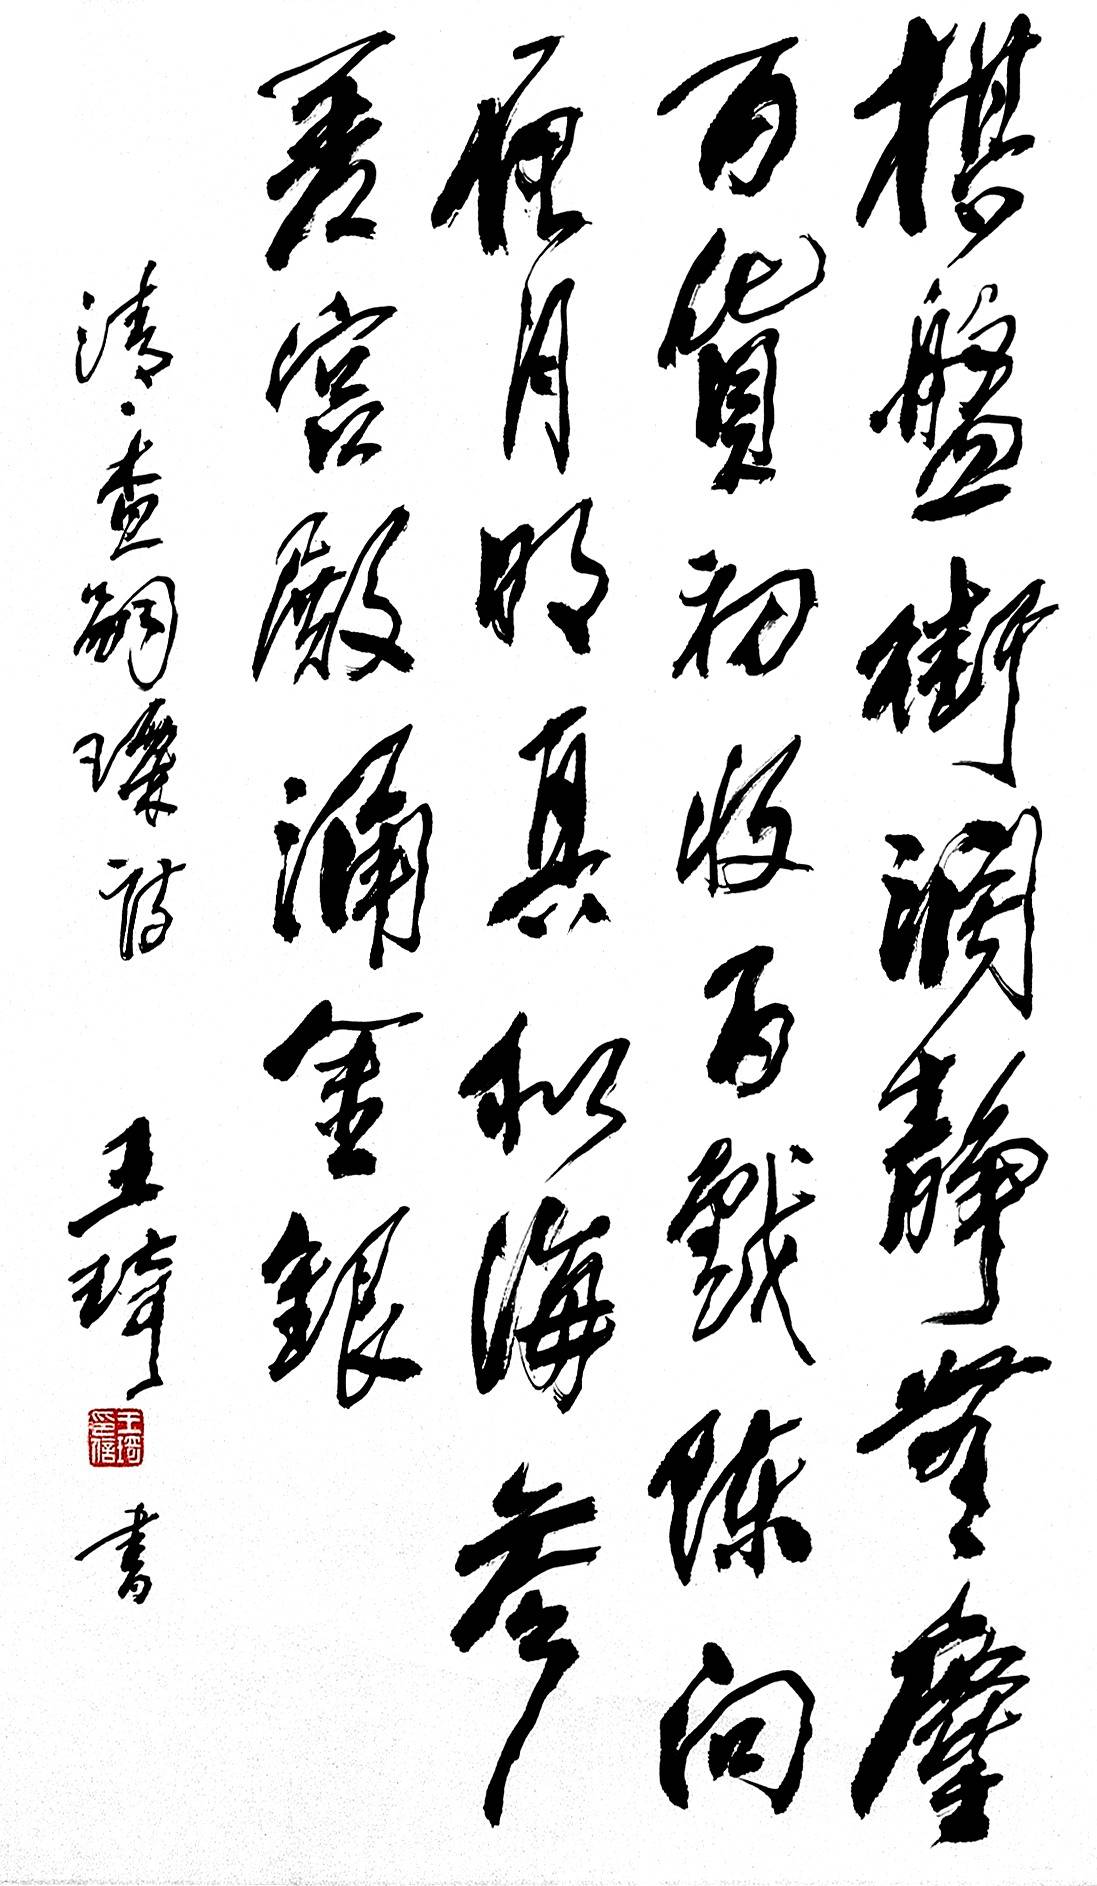 棋盤街濶静無塵
百貨初收百戲陳向
夜月明真似海參
差宮殿涌金銀
清·查嗣瑮詩 王琦書
王琦
印信